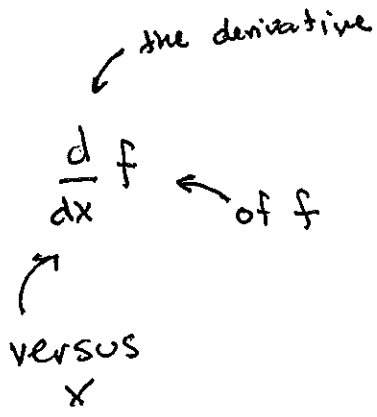 the derivative
d
dx
f
of f
versus
x